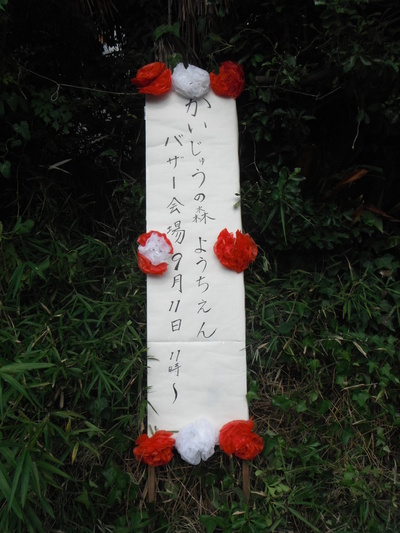 かいじゅうの森ようちえん
バザー会場9月11日 11時～